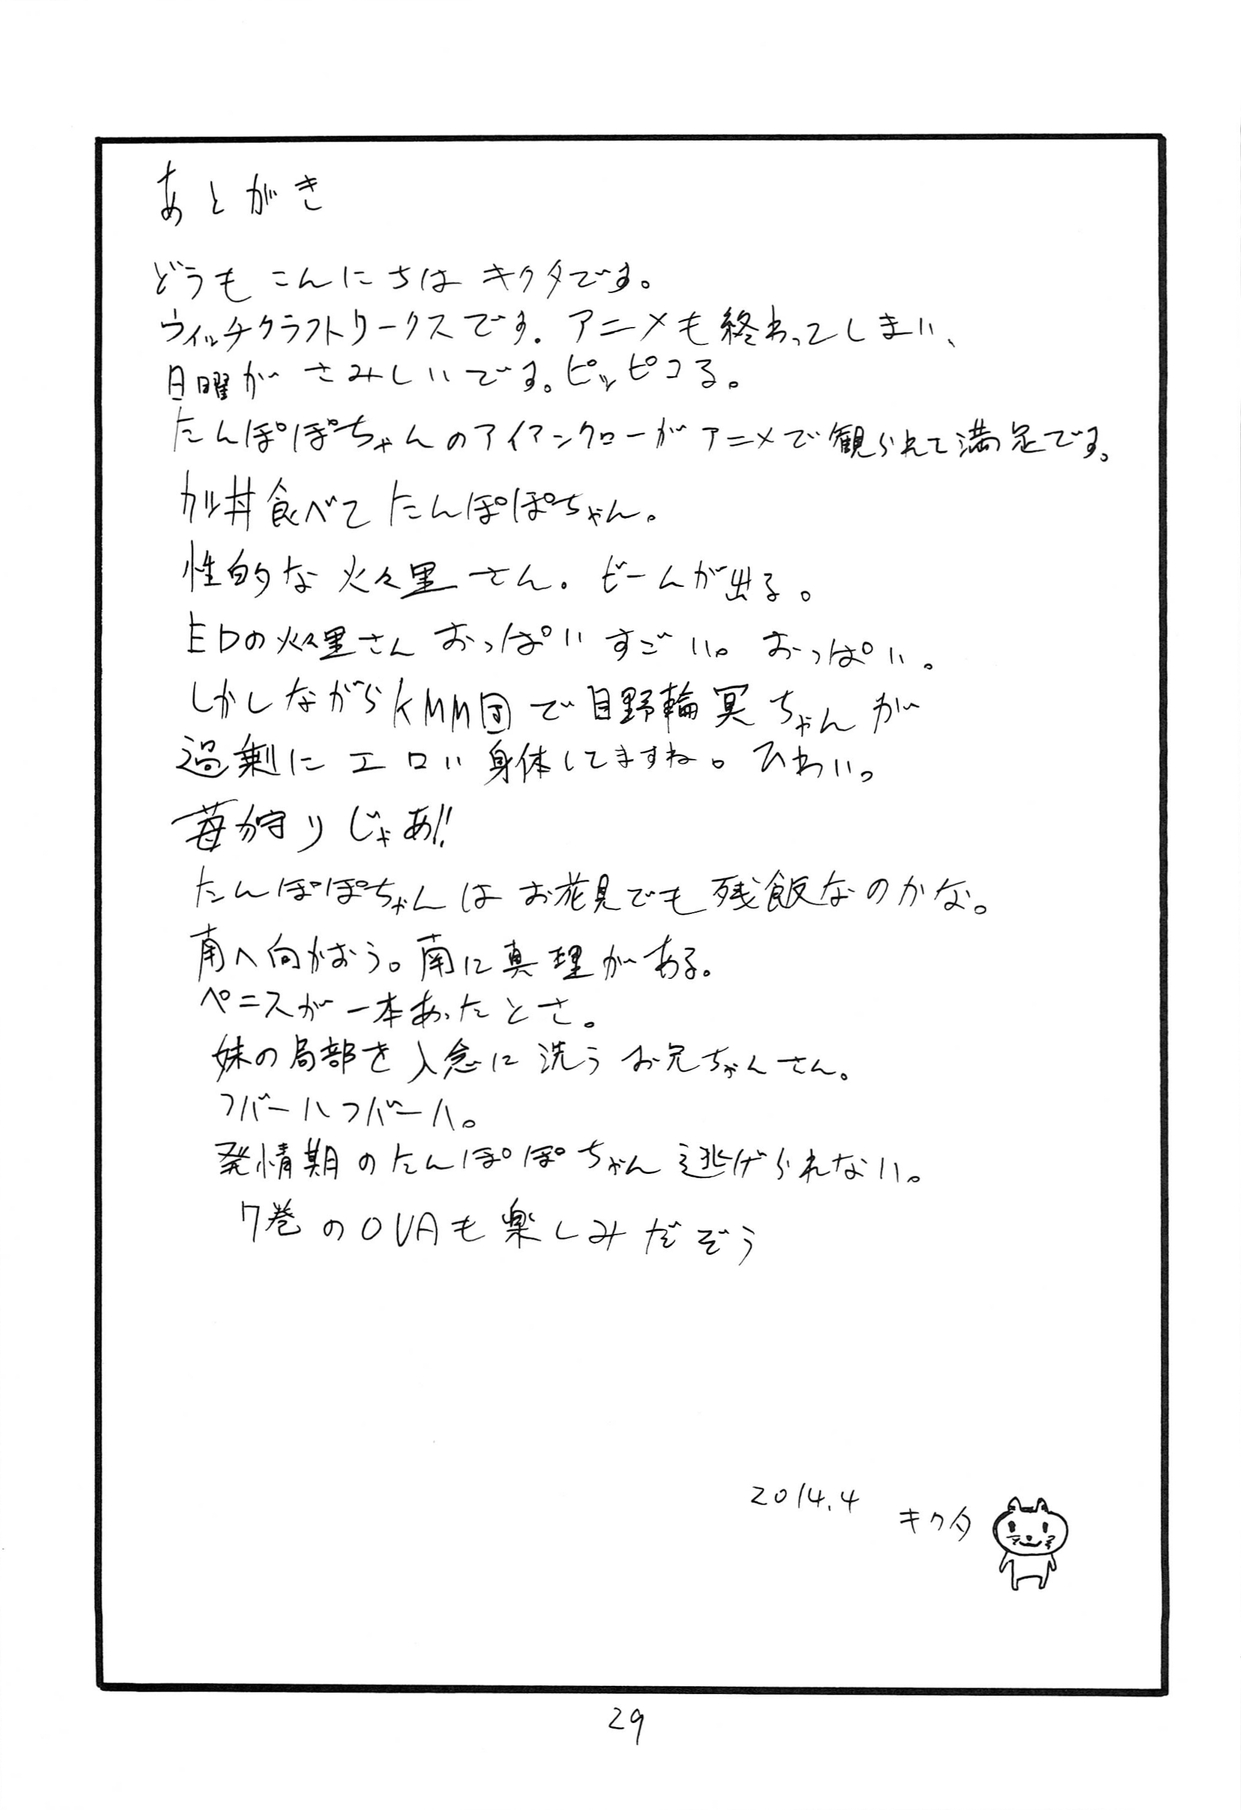 あとがき
どうも こんにちは キクタです。
ウィッチクラフトワークスです。アニメも終わってしまい、
日曜が さみしいです。ピッピコる。
たんぽぽちゃんのアイアンクローがアニメで観られて満足です。
カツ丼食べてたんぽぽちゃん。
性的な火々里さん。ビームが出る。
EDの火々里さん おっぱいすごい。おっぱい。
しかしながらKMM団で目野輪冥ちゃんが
過剰に エロい 身体してますね。ひわい。
苺狩りじゃあ!!
たんぽぽちゃんは お花見でも残飯なのかな。
南へ向かおう。南に真理がある。
ペニスが一本あったとさ。
妹の局部を入念に洗うお兄ちゃんさん。
フバーハフバーハ。
発情期のたんぽぽちゃん逃げられない。
7巻のOVAも楽しみだぞう
2014.4
キクタ
29